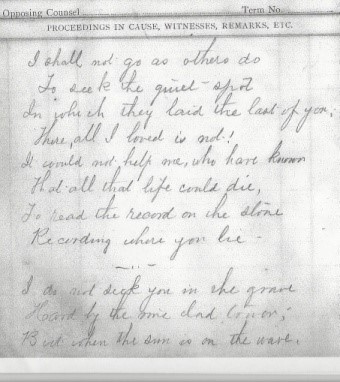 Opposing Counsel Term No.
PROCEEDINGS IN CAUSE, WITNESSES, REMARKS, ETC.
I shall not go as others do
To seek the quiet spot
In which they laid the last of you,
There, all I loved is not!
It would not help me, who have known
That all that life could die,
To read the record on the stone
Recording where you lie -
I do not seek you in the grave
Hard by the vine clad
But when the sun is on the wave,